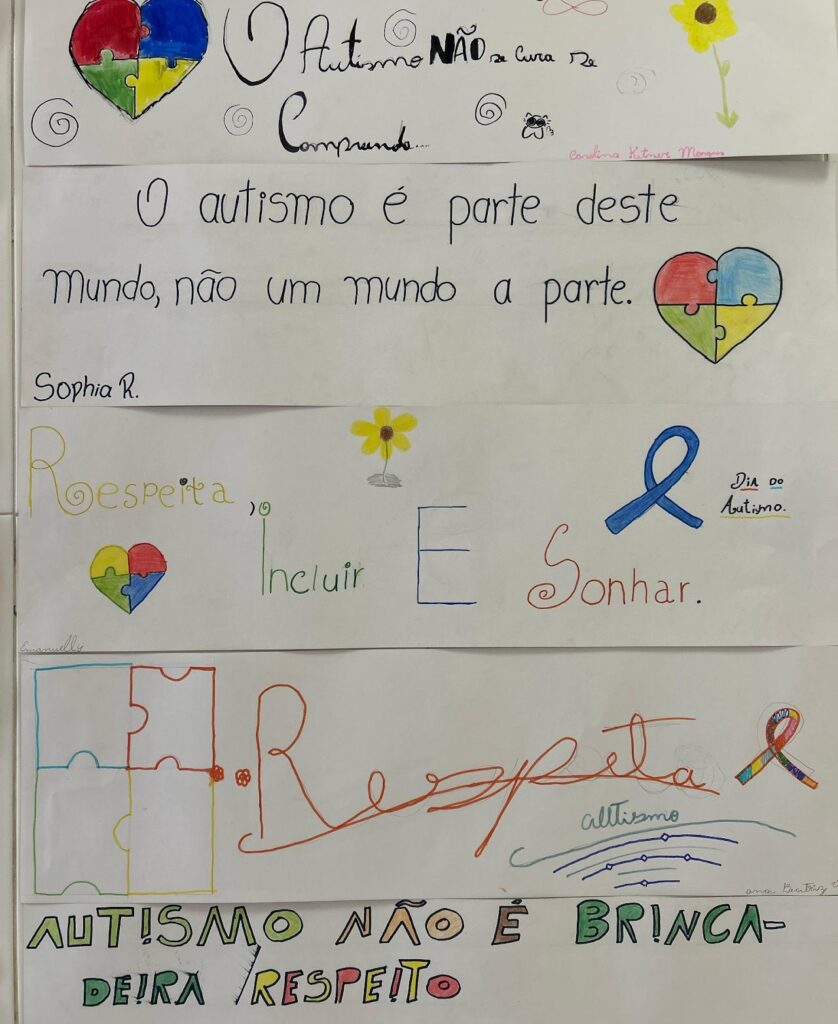 O Autismo NÃO se Cura se
Comprende...
Carolina Kitner Marques
O autismo é parte deste
mundo, não um mundo a parte.
Sophia R.
Respeita,
Incluir E Sonhar.
Dia do
Autismo.
Emanuelly
Respeita
autismo
ana Beatriz
AUTISMO NÃO É BRINCA-
DEIRA /RESPEITO